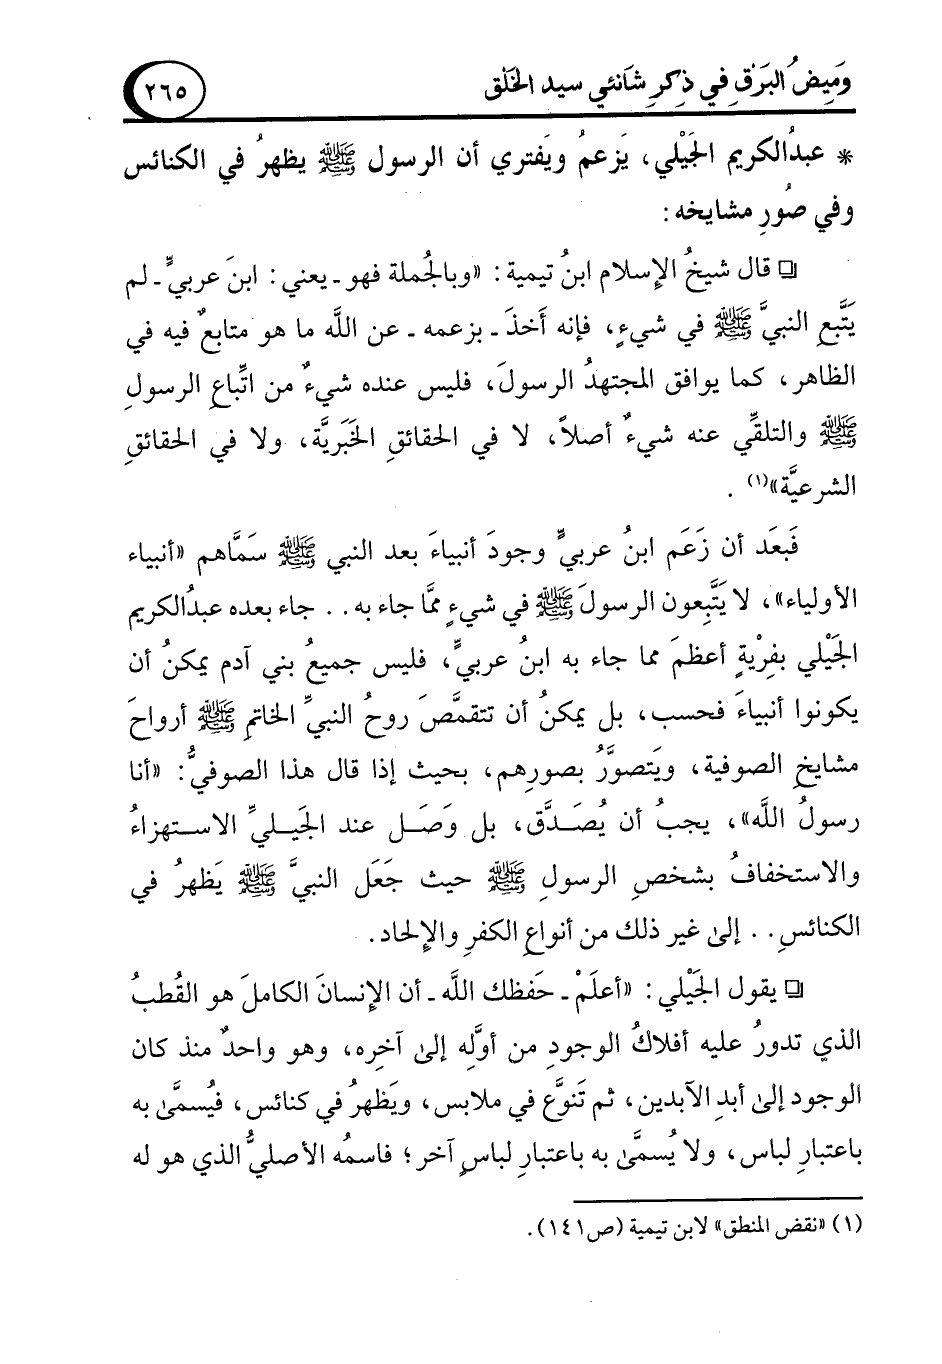 وَمِيضُ البَرْقِ في ذِكرِ شَانئي سيد الخَلْق
٢٦٥
* عبدُالكريم الجَيْلي، يَزعمُ ويَفتري أن الرسول ﷺ يظهرُ في الكنائس
وفي صُورِ مشايخه:
❏ قال شيخُ الإسلام ابنُ تيمية: «وبالجُملة فهو ـ يعني: ابنَ عربيٍّ ـ لم
يَتَّبع النبيَّ ﷺ في شيءٍ، فإنه أَخذَ ـ بزعمه ـ عن الله ما هو متابعٌ فيه في
الظاهر، كما يوافق المجتهدُ الرسولَ، فليس عنده شيءٌ من اتِّباعِ الرسولِ
ﷺ والتلقِّي عنه شيءٌ أصلاً، لا في الحقائقِ الخَبَريَّة، ولا في الحقائقِ
الشرعيَّة»(١).
فَبَعَد أن زَعَم ابنُ عربيٍّ وجودَ أنبياءَ بعد النبي ﷺ سَمَّاهم «أنبياء
الأولياء»، لا يَتَّبِعون الرسولَ ﷺ في شيءٍ ممَّا جاء به . . جاء بعده عبدُالكريم
الجَيْلي بفِرْيةٍ أعظمَ مما جاء به ابنُ عربيٍّ، فليس جميعُ بني آدم يمكنُ أن
يكونوا أنبياءَ فحسب، بل يمكنُ أن تتقمَّصَ روحُ النبيِّ الخاتمِ ﷺ أرواحَ
مشايخِ الصوفية، ويَتصوَّرُ بصورهم، بحيث إذا قال هذا الصوفيُّ: «أنا
رسولُ الله»، يجبُ أن يُصَدَّق، بل وَصَل عند الجَيليِّ الاستهزاءُ
والاستخفافُ بشخصِ الرسولِ ﷺ حيث جَعَل النبيَّ ﷺ يَظهرُ في
الكنائسِ . . إلىٰ غير ذلك من أنواعِ الكفرِ والإلحاد.
❏ يقول الجَيْلي: «أعلَمْ ـ حَفظك اللهَ ـ أن الإنسانَ الكاملَ هو القُطبُ
الذي تدورُ عليه أفلاكُ الوجودِ من أوَّله إلىٰ آخرِه، وهو واحدٌ منذ كان
الوجود إلىٰ أبدِ الآبدين، ثم تَنوَّع في ملابس، ويَظهرُ في كنائس، فيُسمَّىٰ به
باعتبارِ لباس، ولا يُسمَّىٰ به باعتبارِ لباسٍ آخر؛ فاسمُه الأصليُّ الذي هو له
(١) «نقض المنطق» لابن تيمية (ص١٤١).